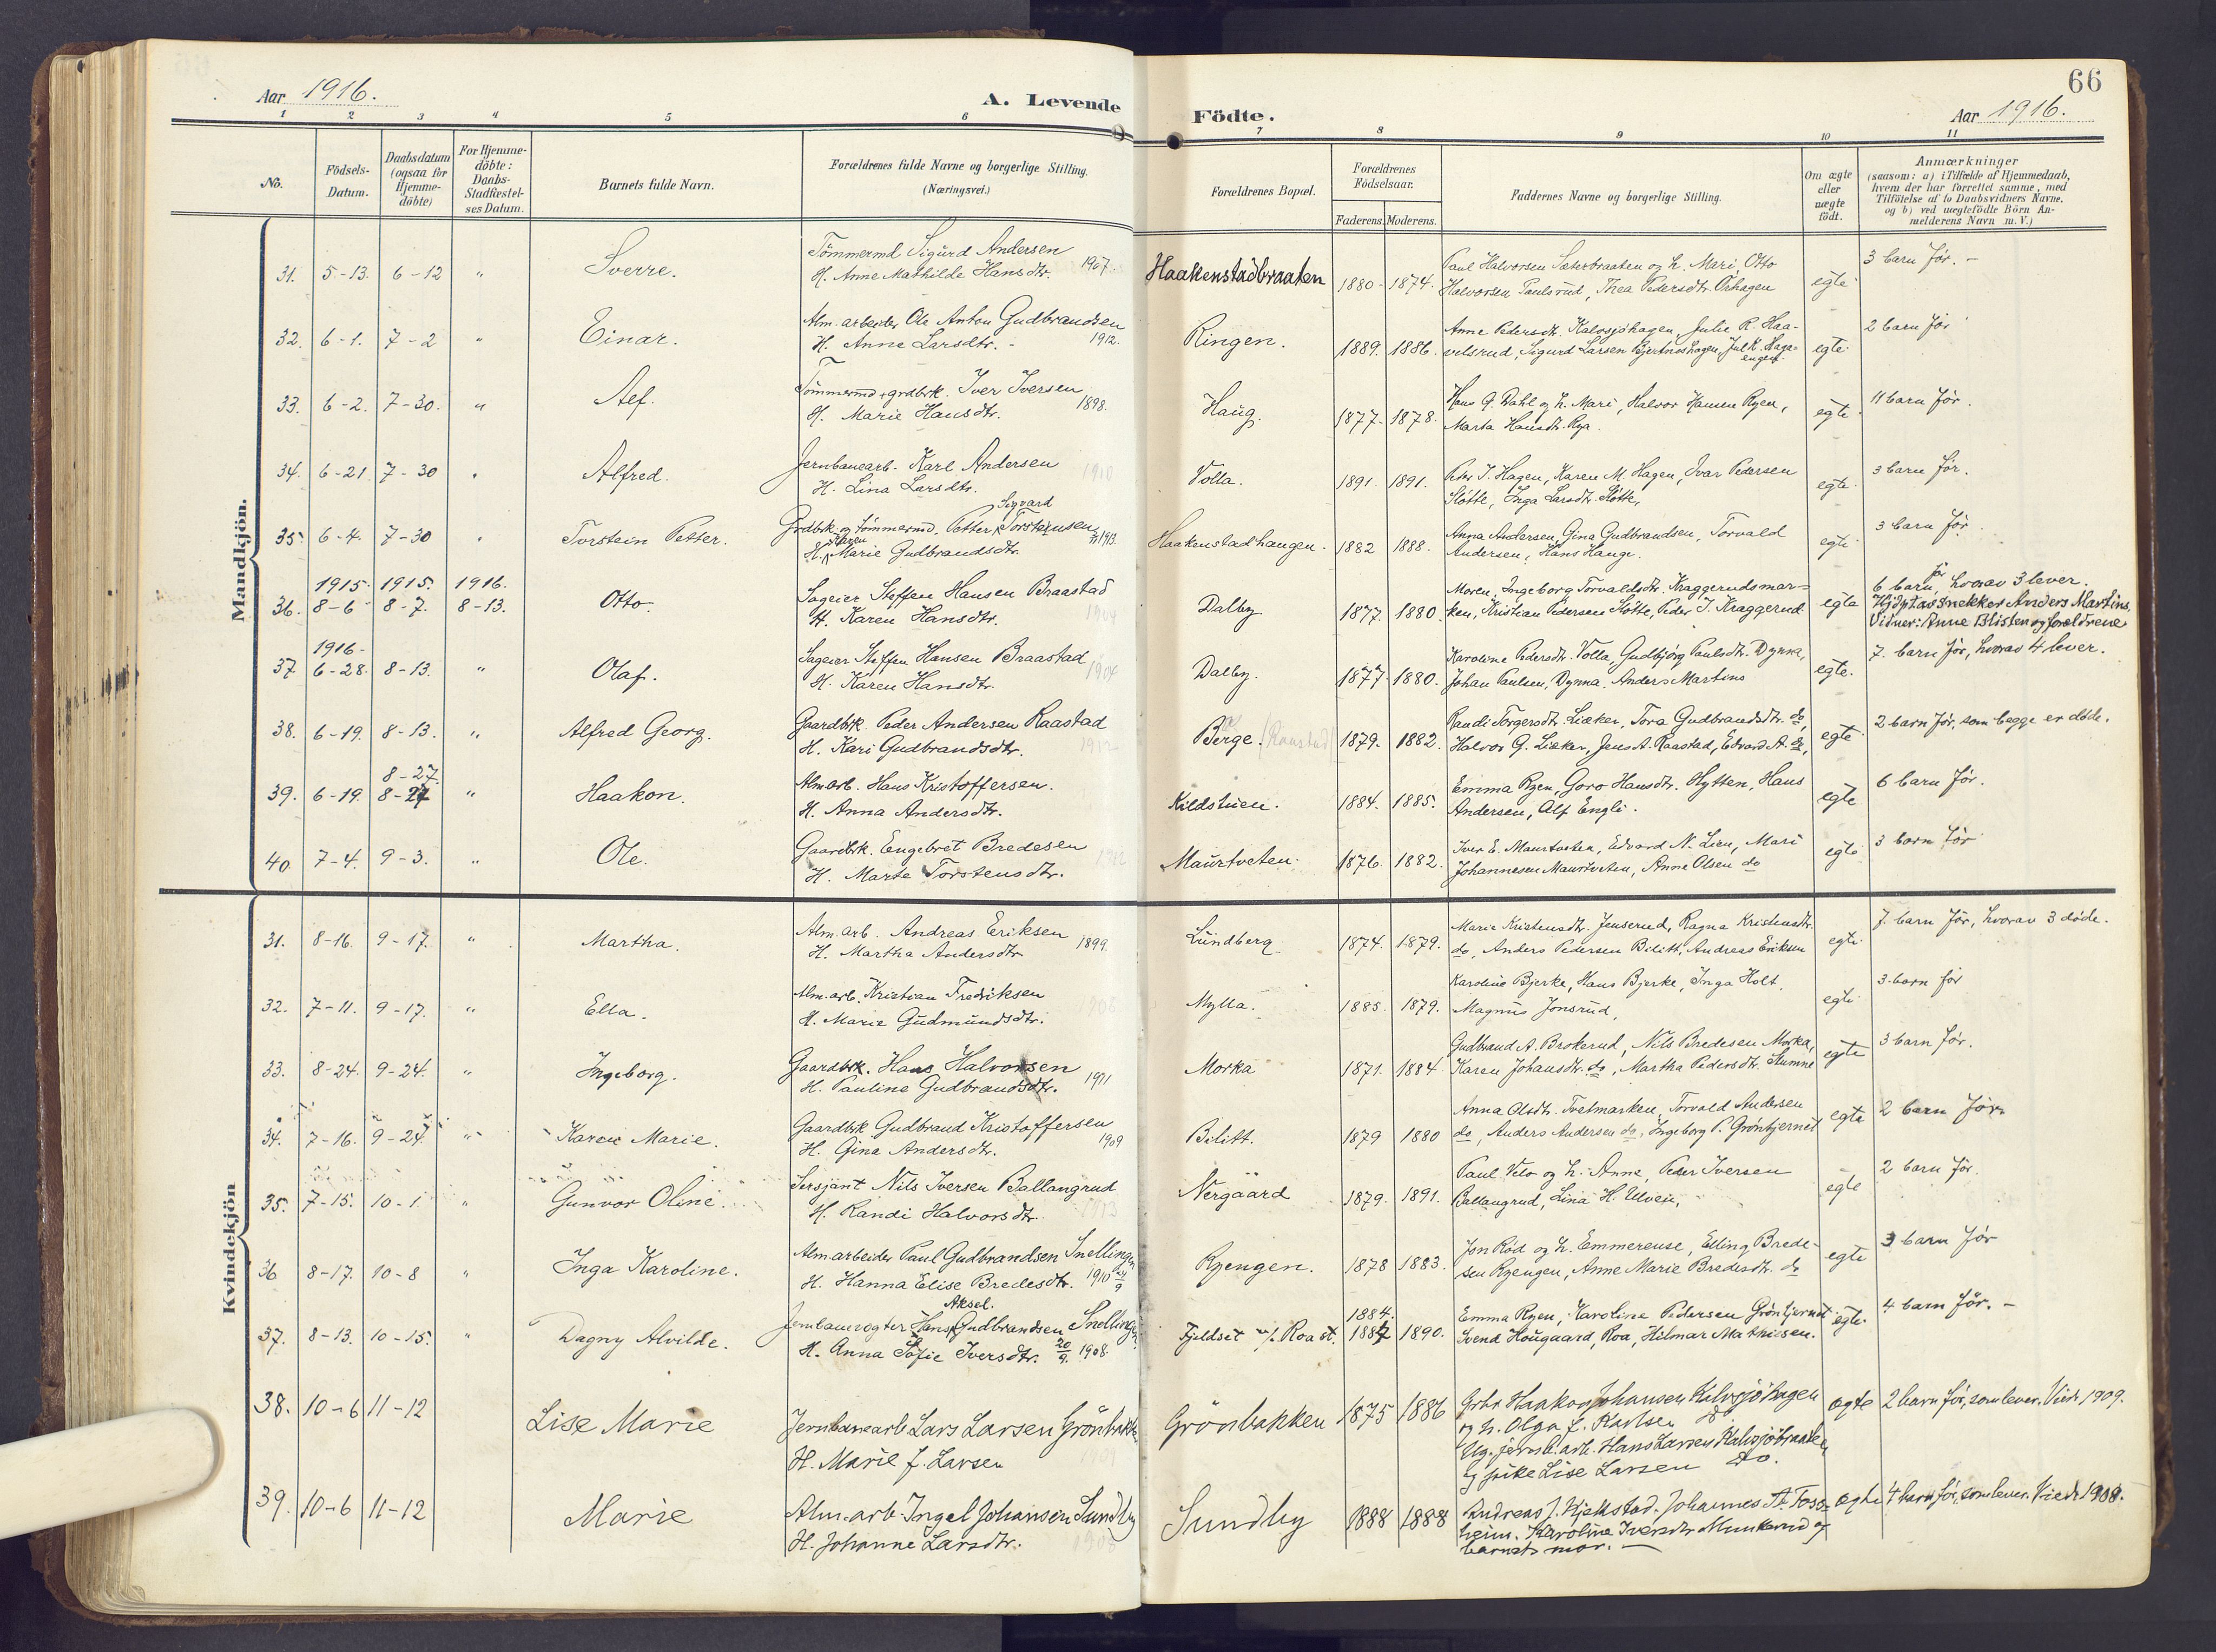 66
Aar 1916.
A. Levende
Födte.
Aar 1916.
1 2 3 4 5 6 7 8 9 10 11
No.
Födsels-
Datum.
Daabsdatum
(ogsaa for
Hjemme-
döbte)
For Hjemme-
döbte:
Daabs-
Stadfæstel-
ses Datum.
Barnets fulde Navn.
Forældrenes fulde Navne og borgerlige Stilling.
(Næringsvei.)
Forældrenes Bopæl.
Forældrenes
Födselsaar.
Faderens. Moderens.
Faddernes Navne og borgerlige Stilling.
Om ægte
eller
uægte
födt.
Anmærkninger
(saasom: a) i Tilfælde af Hjemmedaab,
hvem der har forrettet samme, med
Tilföielse af to Daabsvidners Navne.
og b) ved uægtefödte Börn An-
melderens Navn m. V.)
Mandkjön.
31. 5-13. 6-12 " Sverre.
Tömmermd Sigurd Andersen
H. Anne Mathilde Hansdtr. 1907.
Haakenstadbraaten 1880- 1874.
Paul Halvorsen Sæterbraaten og h. Mari, Otto
Halvorsen Paulsrud, Thea Pedersdtr.
egte 3 barn för. -
32. 6-1. 7-2 " Einar.
Alm. arbeider Ole Anton Gudbrandsen
H. Anne Larsdtr. - 1912.
Ringen. 1889. 1886.
Anne Pedersdtr. Kalvsjöhagen, Julie R. Haa-
velsrud, Sigurd Larsen
egte 2 barn för
33. 6-2. 7-30. " Alf.
Tömmermd + grdbrk. Iver Iversen
H. Marie Hansdtr. 1898.
Haug. 1877- 1878.
Hans G. Dahl og h. Mari, Halvor Hansen Ryen,
Marta Hansdtr. Rya.
egte 11 barn för.
34. 6-21 7-30 " Alfred.
Jernbanearb. Karl Andersen 1910
H. Lina Larsdtr.
Volla. 1891. 1891.
Peder I. Hagen, Karen M. Hagen, Ivar Pedersen
Slötte, Inga Larsdtr. Slötte,
egte 3 barn för.
35. 6-4. 7-30 " Torstein Petter.
Sigvard
Grdbrk. og tömmermd. Petter Torstensen
Karen
H. Marie Gudbrandsdtr. 1913.
Haakenstadhaugen. 1882 1888.
Anna Andersen, Gina Gudbrandsen, Torvald
Andersen, Hans Hauge.
egte 3 barn för.
36. 1915. 8-6 1915. 8-7. 1916. 8-13. Otto.
Sageier Steffen Hansen Braastad
H. Karen Hansdtr. 1904
Dalby 1877. 1880.
Moren, Ingeborg Torvaldsdtr. Kraggerudsmar-
ken, Kristian Pedersen Slötte, Peder I. Kraggerud
egte 6 barn för, hvorav 3 lever.
Hjdpt av snekker Anders Martins.
Vidner: Anne Blisten og foreldrene
37 1916- 6-28. 8-13. " Olaf.
Sageier Steffen Hansen Braastad
H. Karen Hansdtr. 1904
Dalby. 1877. 1880.
Karoline Pedersdtr. Volla, Gudbjörg Paulsdtr. Dynna,
Johan Paulsen, Dynna. Anders Martins
egte. 7. barn för, hvorav 4 lever.
38. 6-19. 8-13. " Alfred Georg.
Gaardbrk. Peder Andersen Raastad
H. Kari Gudbrandsdtr. 1912
Berge. (Raastad) 1879. 1882.
Randi Torgersdtr. Liæker, Tora Gudbrandsdtr. do,
Halvor G. Liæker, Jens A. Raastad, Edvard A. do,
egte 2 barn för, som begge er döde.
39. 6-19. 8-27. 8-27 " Haakon.
Alm arb. Hans Kristoffersen.
H. Anna Andersdtr.
Kildstuen. 1884. 1885.
Emma Ryen, Goro Hansdtr. Hytten, Hans
Andersen, Alf Engli.
egte 6 barn för.
40. 7-4. 9-3. " Ole.
Gaardbrk. Engebret Bredesen
H. Marte Torstensdtr. 1912
Maurtveten. 1876. 1882.
Iver E. Maurtveten, Edvard N. Lien, Mari
Johannesen Maurtveten, Anne Olsen do
egte 3 barn för
Kvindekjön
31. 8-16. 9-17. " Martha.
Alm. arb. Andreas Eriksen
H. Martha Andersdtr 1899.
Lundberg 1874. 1879.
Marie Kristensdtr. Jenserud, Ragna Kristensdtr.
do, Anders Pedersen Bilitt, Andreas Eriksen
egte 7. barn för, hvorav 3 döde.
32. 7-11. 9-17. " Ella.
Alm. arb. Kristian Fredriksen
H. Marie Gudmundsdtr.
Mylla. 1885. 1879.
Karoline Bjerke, Hans Bjerke, Inga Holt,
Magnus Jonsrud,
egte 3 barn för
33. 8-24. 9-24. " Ingeborg.
Gaardbrk. Hans Halvorsen
H. Pauline Gudbrandsdtr. 1911
Morka 1871. 1884
Gudbrand A. Brokerud, Nils Bredesen Morka,
Karen Johansdtr. do, Martha Pedersdtr. Stumne
egte 3 barn för.
34. 7-16. 9-24. " Karen Marie.
Gaardbrk Gudbrand Kristoffersen
H. Gina Andersdtr. 1909
Bilitt. 1879 1880
Anna Olsdtr. Tvetmarken, Torvald Andersen
do, Anders Andersen do, Ingeborg P. Gröntjernet
egte 2 barn för.
35. 7-15. 10-1. " Gunvor Oline.
Sersjant Nils Iversen Ballangrud
H. Randi Halvorsdtr. 1913
Nergaard 1879. 1891.
Paul Velo og h. Anne, Peder Iversen
Ballangrud, Lina H. Ulven,
egte 2 barn för.
36 8-17. 10-8 " Inga Karoline.
Alm. arbeider Paul Gudbrandsen Snellingen
H. Hanna Elise Bredesdtr. 1910
Ryengen. 1878 1883.
Jon Röd og h. Emmerense, Elling Brede-
sen Ryengen, Anne Marie Bredesdtr. do
egte 3 barn för
37. 8-13. 10-15. " Dagny Alvilde.
Aksel.
Jernbanevogter Hans Gudbrandsen Snellingen
H. Anna Sofie Iversdtr. 20/9. 1908.
Fjeldset v/ Roa st. 1884. 1887 1890.
Emma Ryen, Karoline Pedersen Gröntjernet
Svend Hougaard, Roa, Hilmar Mathiesen.
egte 4 barn för. -
38. 10-6 11-12 Lise Marie
Jernbanearb Lars Larsen Grönbakken
H. Marie f. Larsen 1909
Grönbakken 1875 1886
Grbr Haakon Johansen Kalvsjöhagen
og h. Olga f. Karlsen do.
Ug. jernb. arb. Hans Larsen Kalvsjöbraaten
og pike Lise Larsen do.
ægte 2 barn för, som lever. Viede 1909.
39. 10-6 11-12 Marie
Alm. arb Ingel Johansen Sundby
H. Johanne Larsdtr.
Sundby 1888 1888
Andreas J. Hjelkstad. Johannes A. Toss-
heim. Karoline Iversdtr Munkerud og
barnets mor. -
ægte 4 barn för, som lever. Viede 1908.